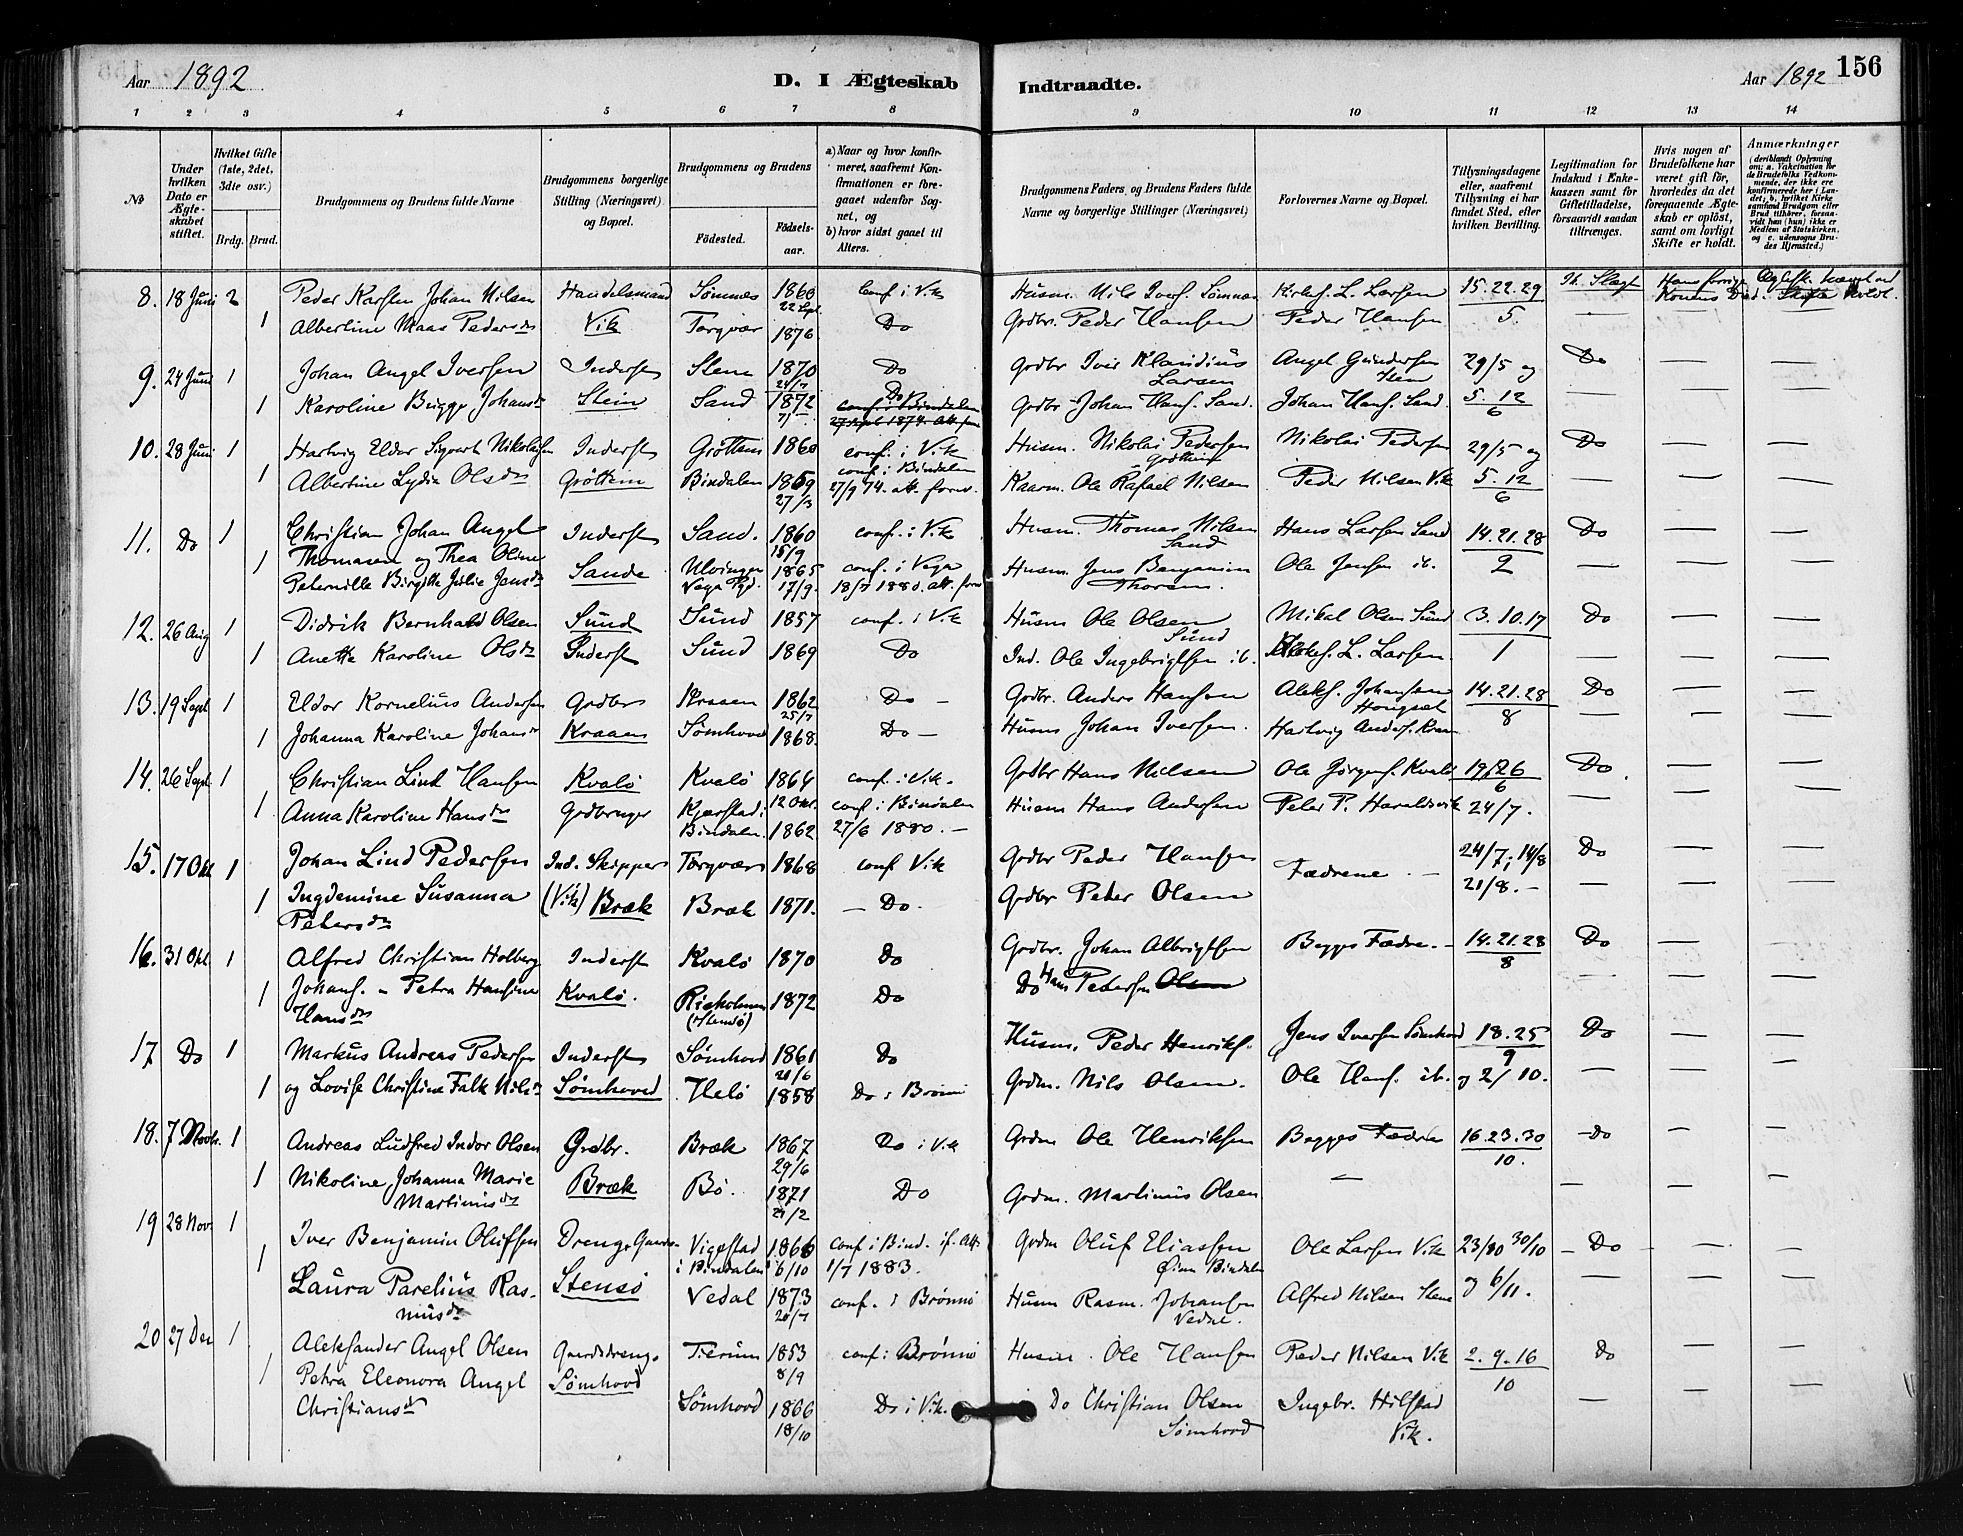 Aar 1892
D. I Ægteskab
Indtraadte.
Aar 1892
156
1 2 3 4 5 6 7 8 9 10 11 12 13 14
No
Under hvilken Dato er Ægteskabet stiftet.
Hvilket Gifte (1ste, 2det, 3dte osv.)
Brdg. Brud.
Brudgommens og Brudens fulde Navne
Brudgommens borgerlige Stilling (Næringsvei) og Bopæl.
Brudgommens og Brudens
Fødested.
Fødselsaar.
a) Naar og hvor konfirmeret, saafremt Konfirmationen er foregaaet udenfor Sognet, og
b) hvor sidst gaaet til Alters.
Brudgommens Faders og Brudens Faders fulde Navne og borgerlige Stillinger (Næringsvei)
Forlovernes Navne og Bopæl.
Tillysningsdagene eller, saafremt Tillysning ei har fundet Sted, efter hvilken Bevilling.
Legitimation for Indskud i Enkekassen samt for Giftetilladelse, forsaavidt saadan tiltrænges.
Hvis nogen af Brudefolkene har været gift før, hvorledes da det foregaaende Ægteskab er opløst, samt om lovligt Skifte er holdt.
Anmærkninger
8. 18 Juni 2 Peder Karsten Johan Nilsen Handelsmand Sømnæs 1860 Conf. i Vik Husm. Nils Iversf. Sømnæs Kirkes. L. Larsen 15.22.29
22 Sept.
1 Albertine Maas Pedersdr Vik Torgvær 1876 Do Grdbr. Peder Hansen Peder Hansen 5.
9. 24 Juni 1 Johan Angel Iversen Inderst Stem 1870 Do Grdbr Iver Klaudius Larsen Angel Gundersen 29/5 og Do
1 Karoline Bugge Johansdr Stein Sand 1872 Do Grdbr Johan Hansf. Sand. Johan Hansf. Sand. 5.12 / 6
10. 28 Juni 1 Hartvig Eldor Sigvart Nikolaisen Inderst Grøttem 1860 conf. i Vik Husm. Nikolai Pedersen Grøttem Nikolai Pedersen 29/5 og Do
1 Albertine Lydia Olsdr Grøttem Bindalen 1859 27/3 conf. i Bindalen 27/9 74. att. forev. Kaarm. Ole Rafael Nilsen Peder Nilsen Vik 5.12 / 6
11. Do 1 Christian Johan Angel Inderst Sand. 1860 conf. i Vik Husm. Thomas Nilsen Sand Hans Larsen Sand 14.21.28 Do
15/9
1 Thomasen og Thea Oline Peternille Birgitte Julie Jensdr Sande Ulvingen Vega Pgd. 1865 17/9. conf. i Vega 18/7 1880. att. forev Husm. Jens Benjamin Thorsen. Ole Jensen ib. 2
12. 26 Aug 1 Didrik Bernhard Olsen Sund Sund 1857 conf. i Vik Husm Ole Olsen Sund Mikal Olsen Sund 3.10.17 Do
1 Anette Karoline Olsdr Inderst Sund 1869 Do Ind. Ole Ingebrigtsen ib. Kirkes. L. Larsen. 1
13. 19 Sept 1 Eldor Kornelius Andersen Grdbr Kraaen 1862 Do Grdbr. Anders Hansen Aleks. Johansen Hongset 14.21.28 Do
25/7
1 Johanna Karoline Johansdr Kraaen Sømhovd 1868. Do Husm Johan Iversen. Hartvig Andersf. Kraaen 8
14. 26 Sept 1 Christian Lind Hansen Kvalø Kvalø 1864 conf. i Vik. Grdbr Hans Nilsen Ole Jørgensf. Kvalø 19.26 / 6 Do
1 Anna Karoline Hansdr Grdbruger Kjærstad i Bindalen. 12 Okt. 1862 conf. i Bindalen 27/6 1880. Husm Hans Andersen Peter P. Haraldsvik 24/7.
15. 17 Okt 1 Johan Lind Pedersen Ind. Skipper Torgvær 1868 conf Vik Grdbr Peder Hansen Fædrene 24/7; 14/8 Do
1 Ingdemine Susanna Petersdr (Vik) Bræk Bræk 1871. Do. Grdbr Peter Olsen 21/8.
16. 31 Okt 1 Alfred Christian Holberg Inderst Kvalø 1870 Do Grdbr. Johan Albrigtsen Begges Fædre. 14.21.28 / 8 Do
1 Johansf. - Petra Hansine Hansdr Kvalø. 1872 Do Do Hans Petersen
17 Do 1 Markus Andreas Pedersen Inderst Sømhovd 1861 Do Husm. Peder Henriksf. Jens Iversen Sømhovd 18.25 / 9 Do
21/6
1 og Lovise Christine Falk Nilsdr Sømhoved Helø 1858 Do i Brønnø Grdm. Nils Olsen. Ole Hansf. ib. og 2/10.
18. 7 Novbr. 1 Andreas Ludfred Indor Olsen Grdbr. Bræk 1867 Do i Vik Grdm Ole Henriksen Begges Fædre 16.23.30 / 10. Do
29/6
1 Nikoline Johanna Marie Martinusdr Bræk Bø. 1871 21/2 Do Grdm. Martinus Olsen
19 28 Nov. 1 Iver Benjamin Olufsen Vigestad i Bindalen 1866 6/10 conf i Bind. if. Att. 1/7 1883. Grdm Oluf Eliassen Bindalen Ole Larsen Vik 23/10 30/10 Do
1 Laura Parelius Rasmusdr Stensø Vedal 1873 20/7 conf. i Brønnø Husm Rasm. Johansen Vedal. Alfred Nilsen og 6/11.
20 27 Dec 1 Aleksander Angel Olsen Gaardsdreng Tierum 1853 8/9 conf i Brønnø Husm. Ole Hansen Peder Nilsen Vik 2.9.16 / 10 Do
1 Petra Eleonora Angel Christiansdr Sømhovd Sømhovd 1866 18/10 Do i Vik. Do Christian Olsen Sømhovd Ingebr. Hilstad Vik.